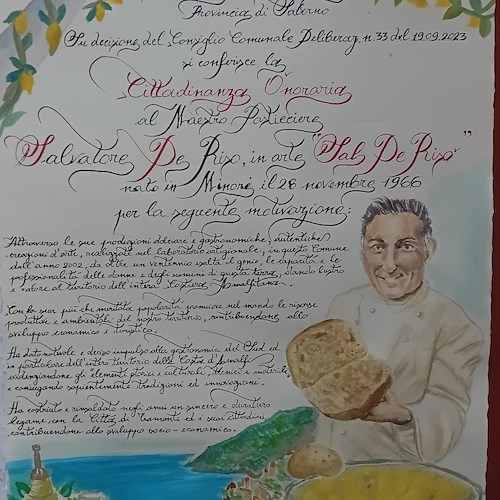 Provincia di Salerno
Su decisione del Consiglio Comunale Deliberaz. n. 33 del 19.09.2023
si conferisce la
Cittadinanza Onoraria
al Maestro Pasticciere
Salvatore De Riso, in arte "Sal De Riso"
nato in Minori il 28 novembre 1966
per la seguente motivazione:
Attraverso le sue produzioni dolciarie e gastronomiche, autentiche
creazioni d'arte, realizzate nel laboratorio artigianale, in questo Comune
dall'anno 2002, da oltre un ventennio esalta il genio, le capacità e le
professionalità delle donne e degli uomini di questa terra, dando lustro
e valore al territorio dell'intera Costiera Amalfitana.
Con la sua più che meritata popolarità promuove nel mondo le risorse
produttive e ambientali del nostro territorio, contribuendone allo
sviluppo economico e turistico.
Ha dato notevole e deciso impulso alla gastronomia del Sud ed
in particolare dell'intero territorio della Costa d'Amalfi
evidenziandone gli elementi storici e culturali, identici e materiali,
e coniugando sapientemente tradizioni ed innovazioni.
Ha costruito e rinsaldato negli anni un sincero e duraturo
legame con la Città di Tramonti ed i suoi cittadini
contribuendone allo sviluppo socio-economico.